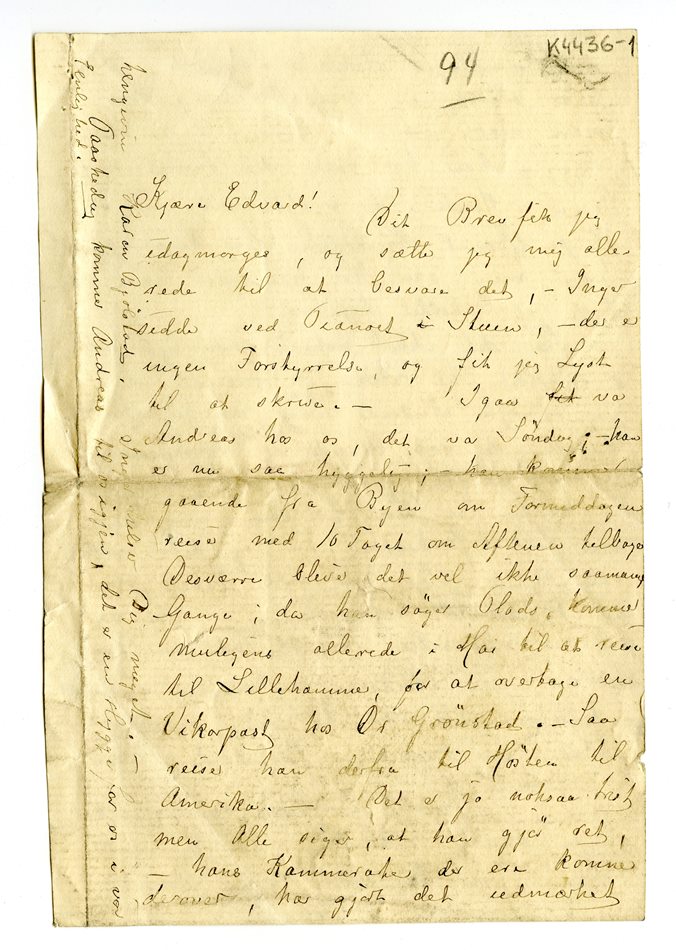 K4436-1
94
Kjære Edvard!
Dit Brev fik jeg
idagmorges, og sætte jeg mig alle-
rede til at besvare det, - Inger
sidde ved Pianoet i Stuen, - der er
ingen Forstyrrelse, og fik jeg Lyst
til at skrive. - Igaa va
Andreas hos os, det va Söndag; - han
er nu saa hyggelig; - han kommer
gaaende fra Byen om Formiddagen
reise med 10 Toget om Aftenen tilbage
Desværre blive det vel ikke saamange
Gange; da han söger Plads, komme
muligens allerede i Mai til at reise
til Lillehamme, for at overtage en
Vikarpost hos Dr Grönstad. - Saa
reise han derfra til Hösten til
Amerika. - Det e jo noksaa trist
men Alle siger, at han gjör ret,
- hans Kammerate der ere komme
derover, ha gjört det udmærket
hengivne Karen Bjölstad. Inger hilser Dig meget. -
Paaskedag komme Andreas til os igjen, det e en Hygge for os i vor
Eenlighed.